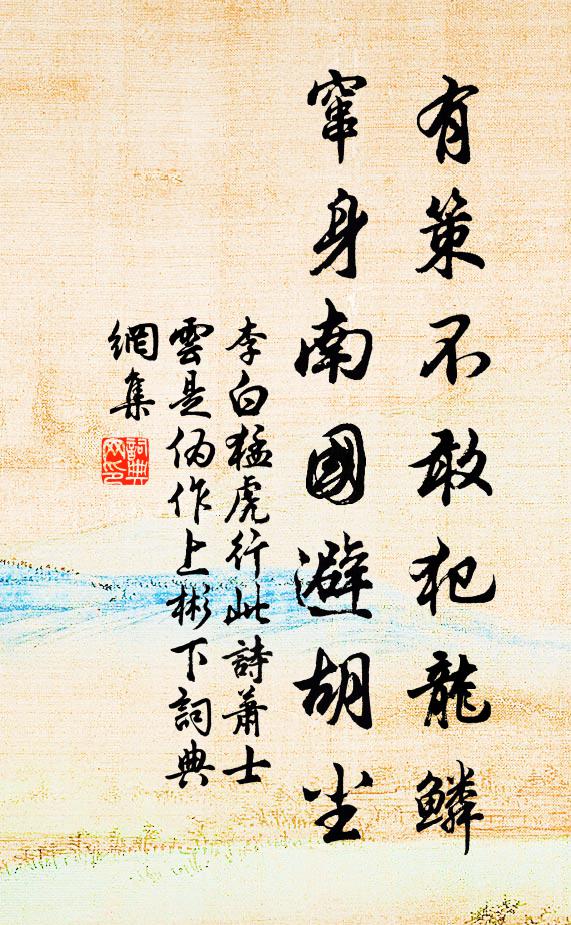 有策不敢犯龍鱗
窜身南國避胡尘
李白猛虎行此詩蕭士
雲是伪作上彬下詞典
網集
詞典网印